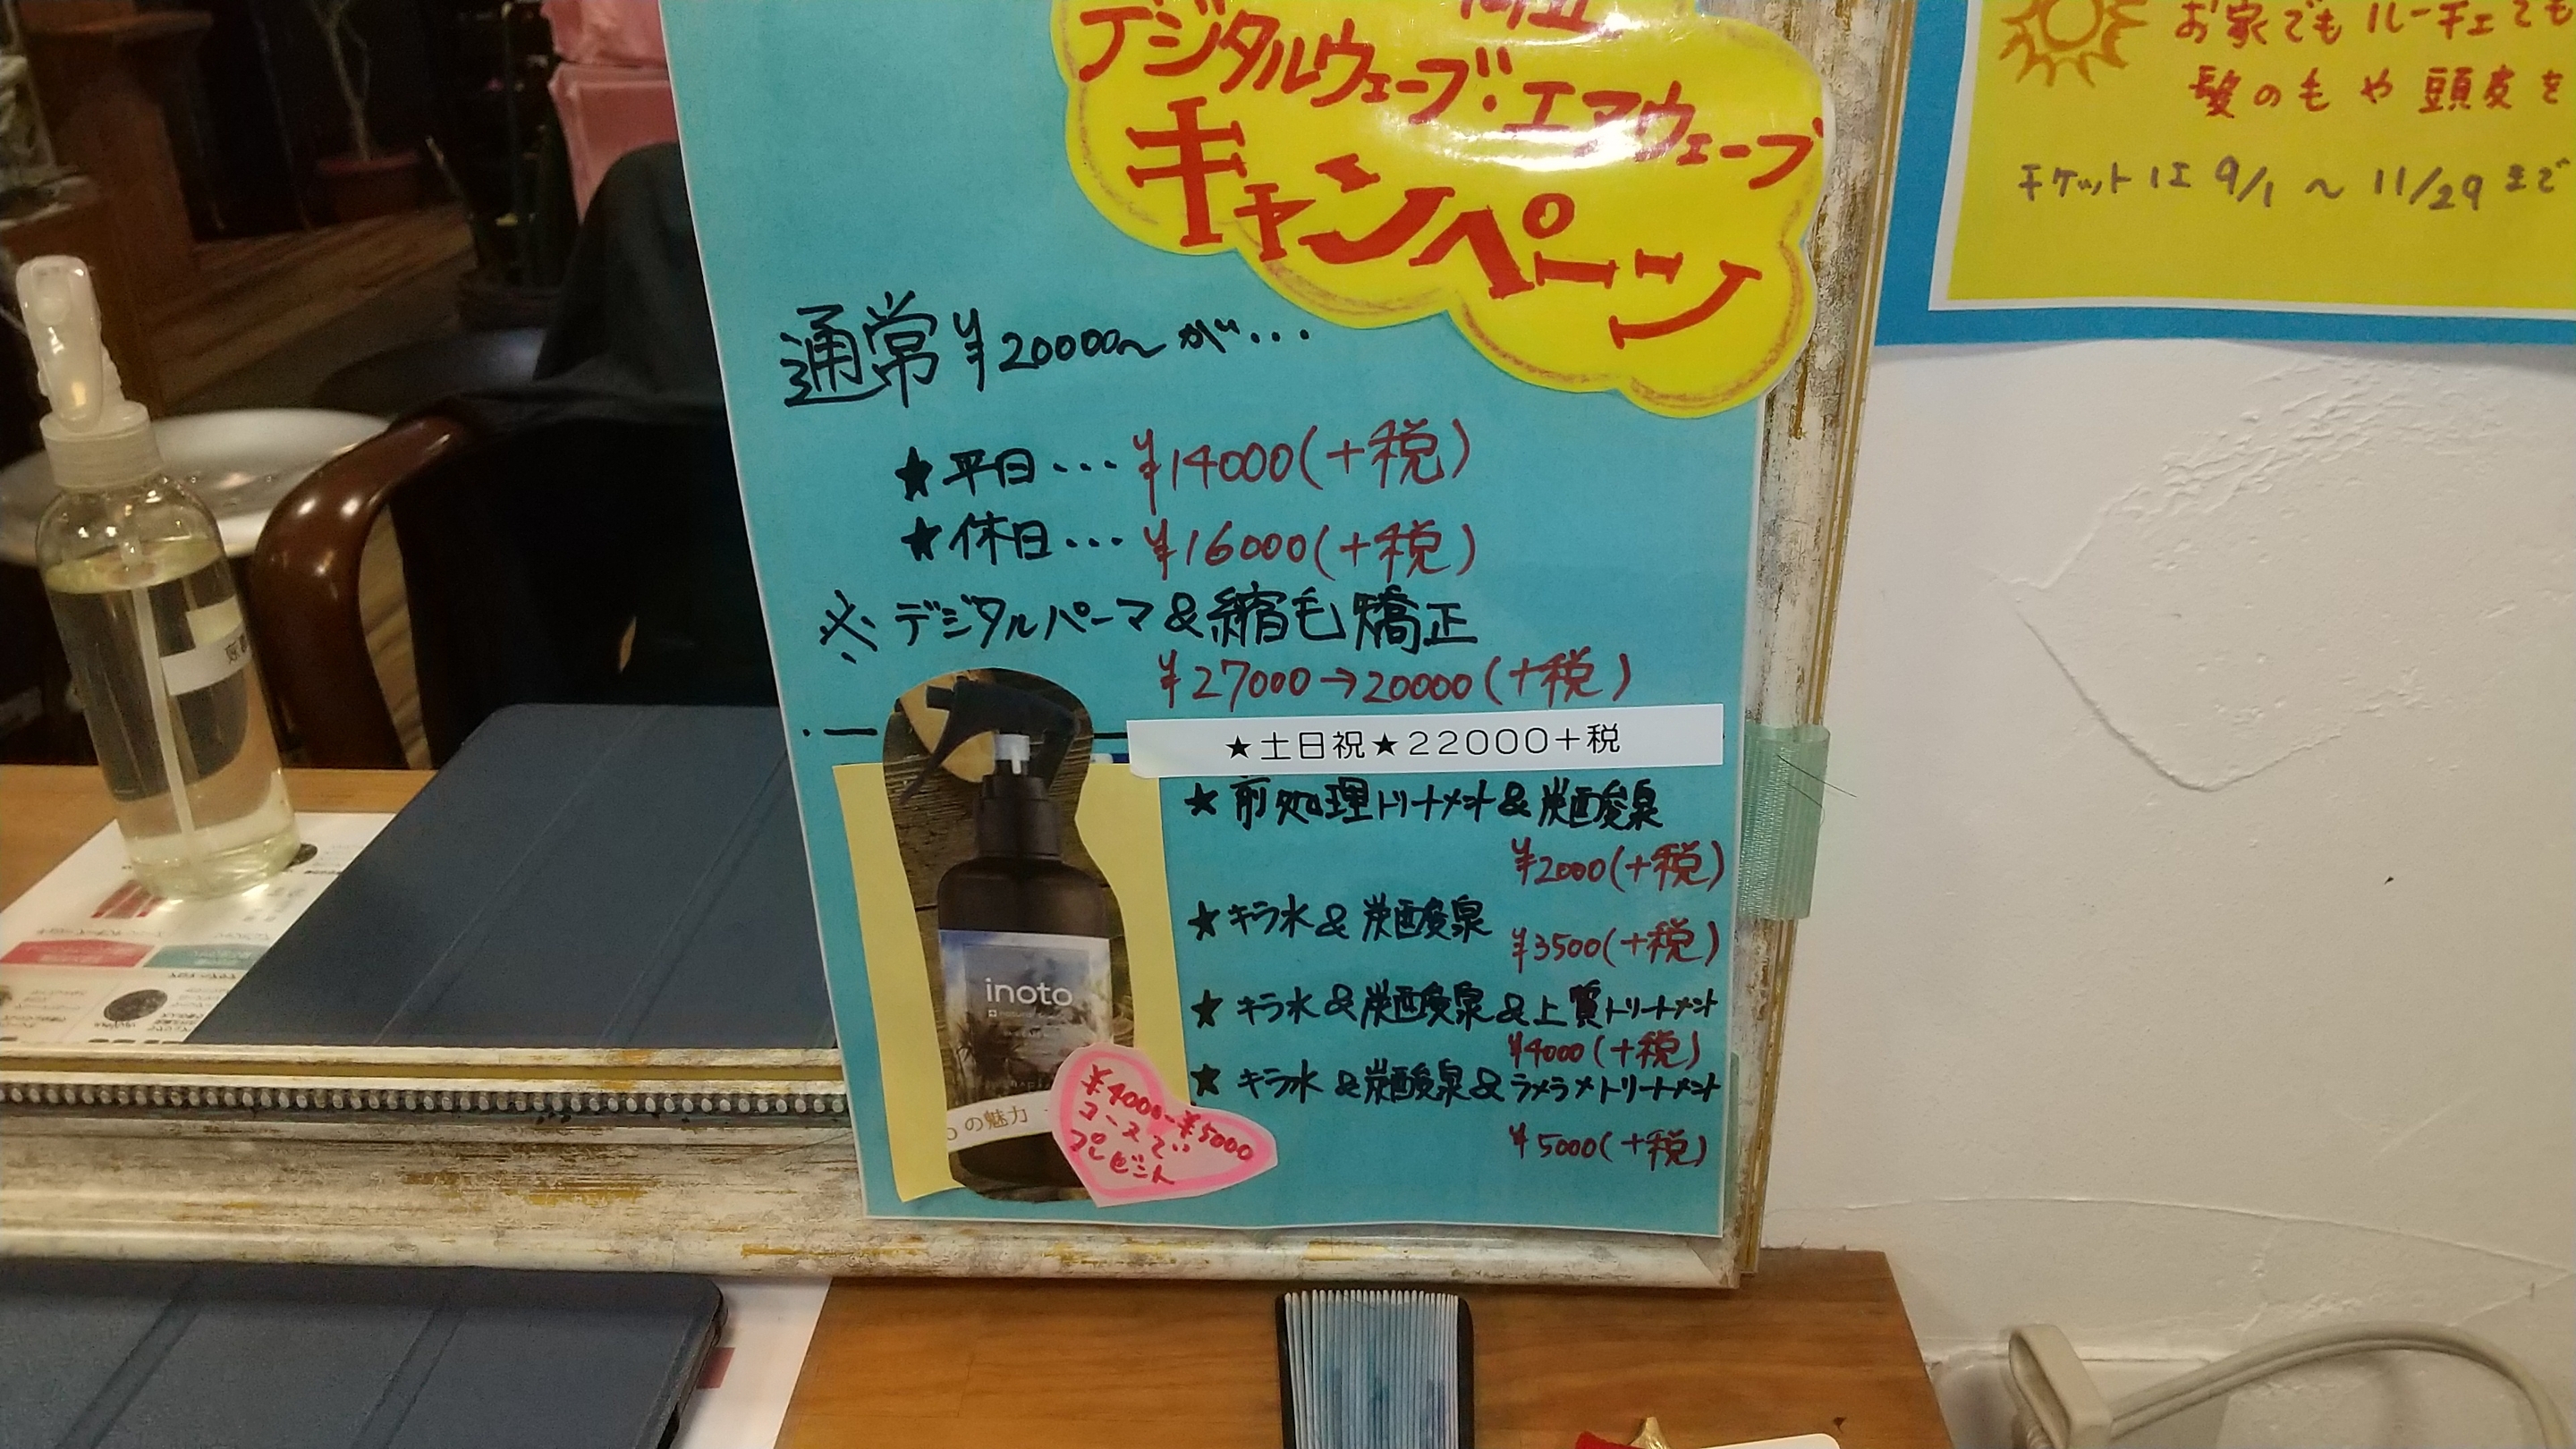 デジタルウェーブ・エアウェーブ
キャンペーン
通常¥20000～が・・・
★平日・・・¥14000(+税)
★休日・・・¥16000(+税)
※デジタルパーマ&縮毛矯正
¥27000→20000(+税)
★土日祝★22000+税
★前処理トリートメント&炭酸泉
¥2000(+税)
★キラ水&炭酸泉
¥3500(+税)
★キラ水&炭酸泉&上質トリートメント
¥4000(+税)
★キラ水&炭酸泉&ラメラメトリートメント
¥5000(+税)
inoto
の魅力
¥4000~¥5000
コースで
プレゼント
お家でもルーチェでも
髪の毛や頭皮を
チケットは9/1～11/29まで